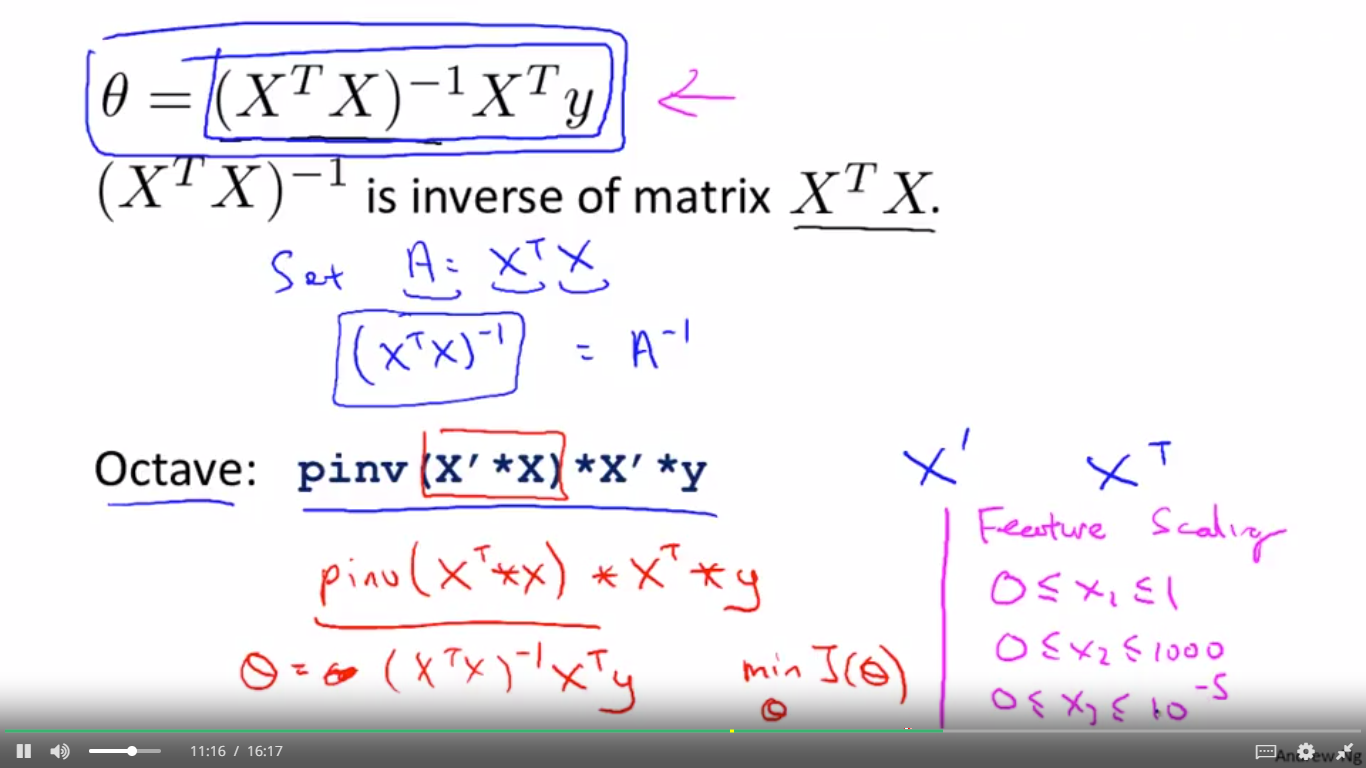 θ = (XᵀX)⁻¹Xᵀy
(XᵀX)⁻¹ is inverse of matrix XᵀX.
Set A = XᵀX
(XᵀX)⁻¹ = A⁻¹
Octave: pinv(X'*X)*X'*y
X' Xᵀ
pinv(Xᵀ*X)*Xᵀ*y
θ = (XᵀX)⁻¹Xᵀy
min J(θ)
θ
Feature Scaling
0 ≤ x₁ ≤ 1
0 ≤ x₂ ≤ 1000
0 ≤ x₃ ≤ 10⁻⁵
11:16 / 16:17
Andrew Ng